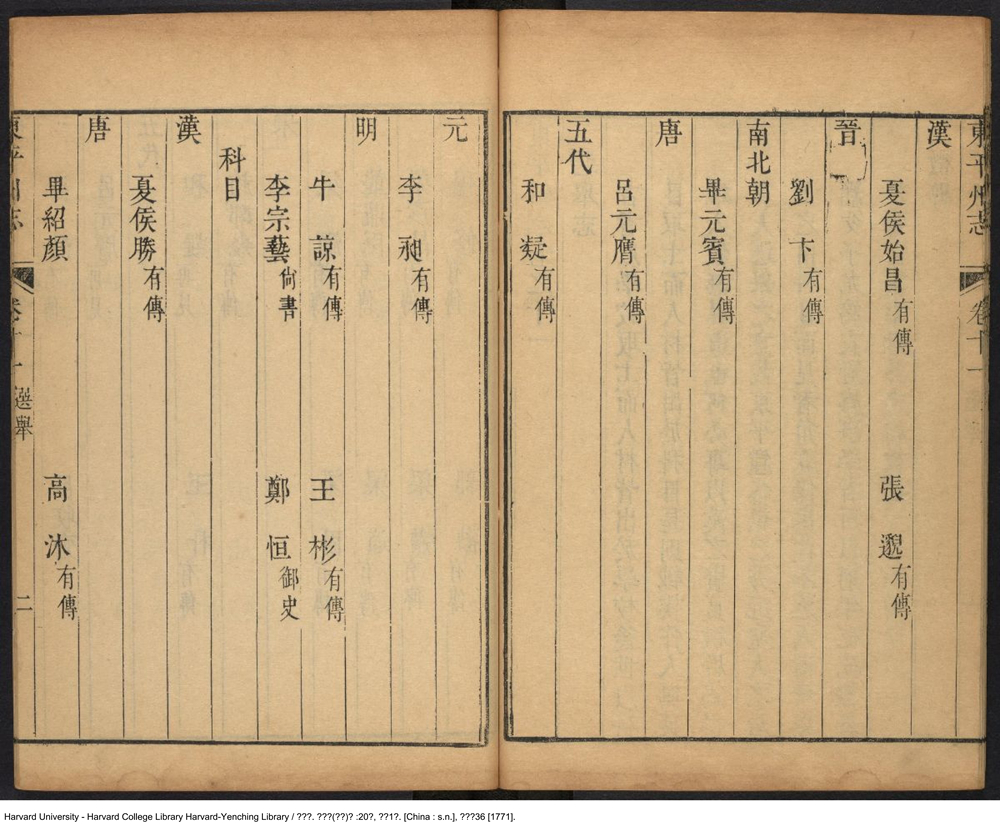 東平州志 卷十一
漢
夏侯始昌有傳 張邈有傳
晉
劉卞有傳
南北朝
畢元賓有傳
唐
呂元膺有傳
五代
和凝有傳
元
李昶有傳
明
牛諒有傳 王彬有傳
李宗藝尙書 鄭恒御史
科目
漢
夏侯勝有傳
唐
畢紹顏 高沐有傳
東平州志 卷十一 選舉 二
Harvard University - Harvard College Library Harvard-Yenching Library / ???. ???(??)? :20?, ??1?. [China : s.n.], ???36 [1771].